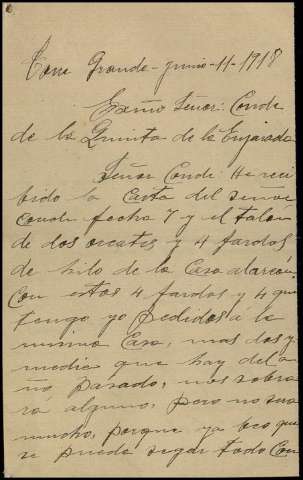 Torre Grande - junio - 11 - 1918
Exmo Señor: Conde
de la Quinta de la Enjarada
Señor Conde: He reci
bido la Carta del señor
Conde fecha 7 y el talon
de dos ocates y 4 fardos
de hilo de la Casa alarcón,
Con estos 4 fardos y 4 que
tengo yo pedidos a la
misma Casa, mas dos y
medio que hay del a
ño pasado, nos sobra
rá alguno, pero no sera
mucho, porque ya beo que
se puede segar todo Con